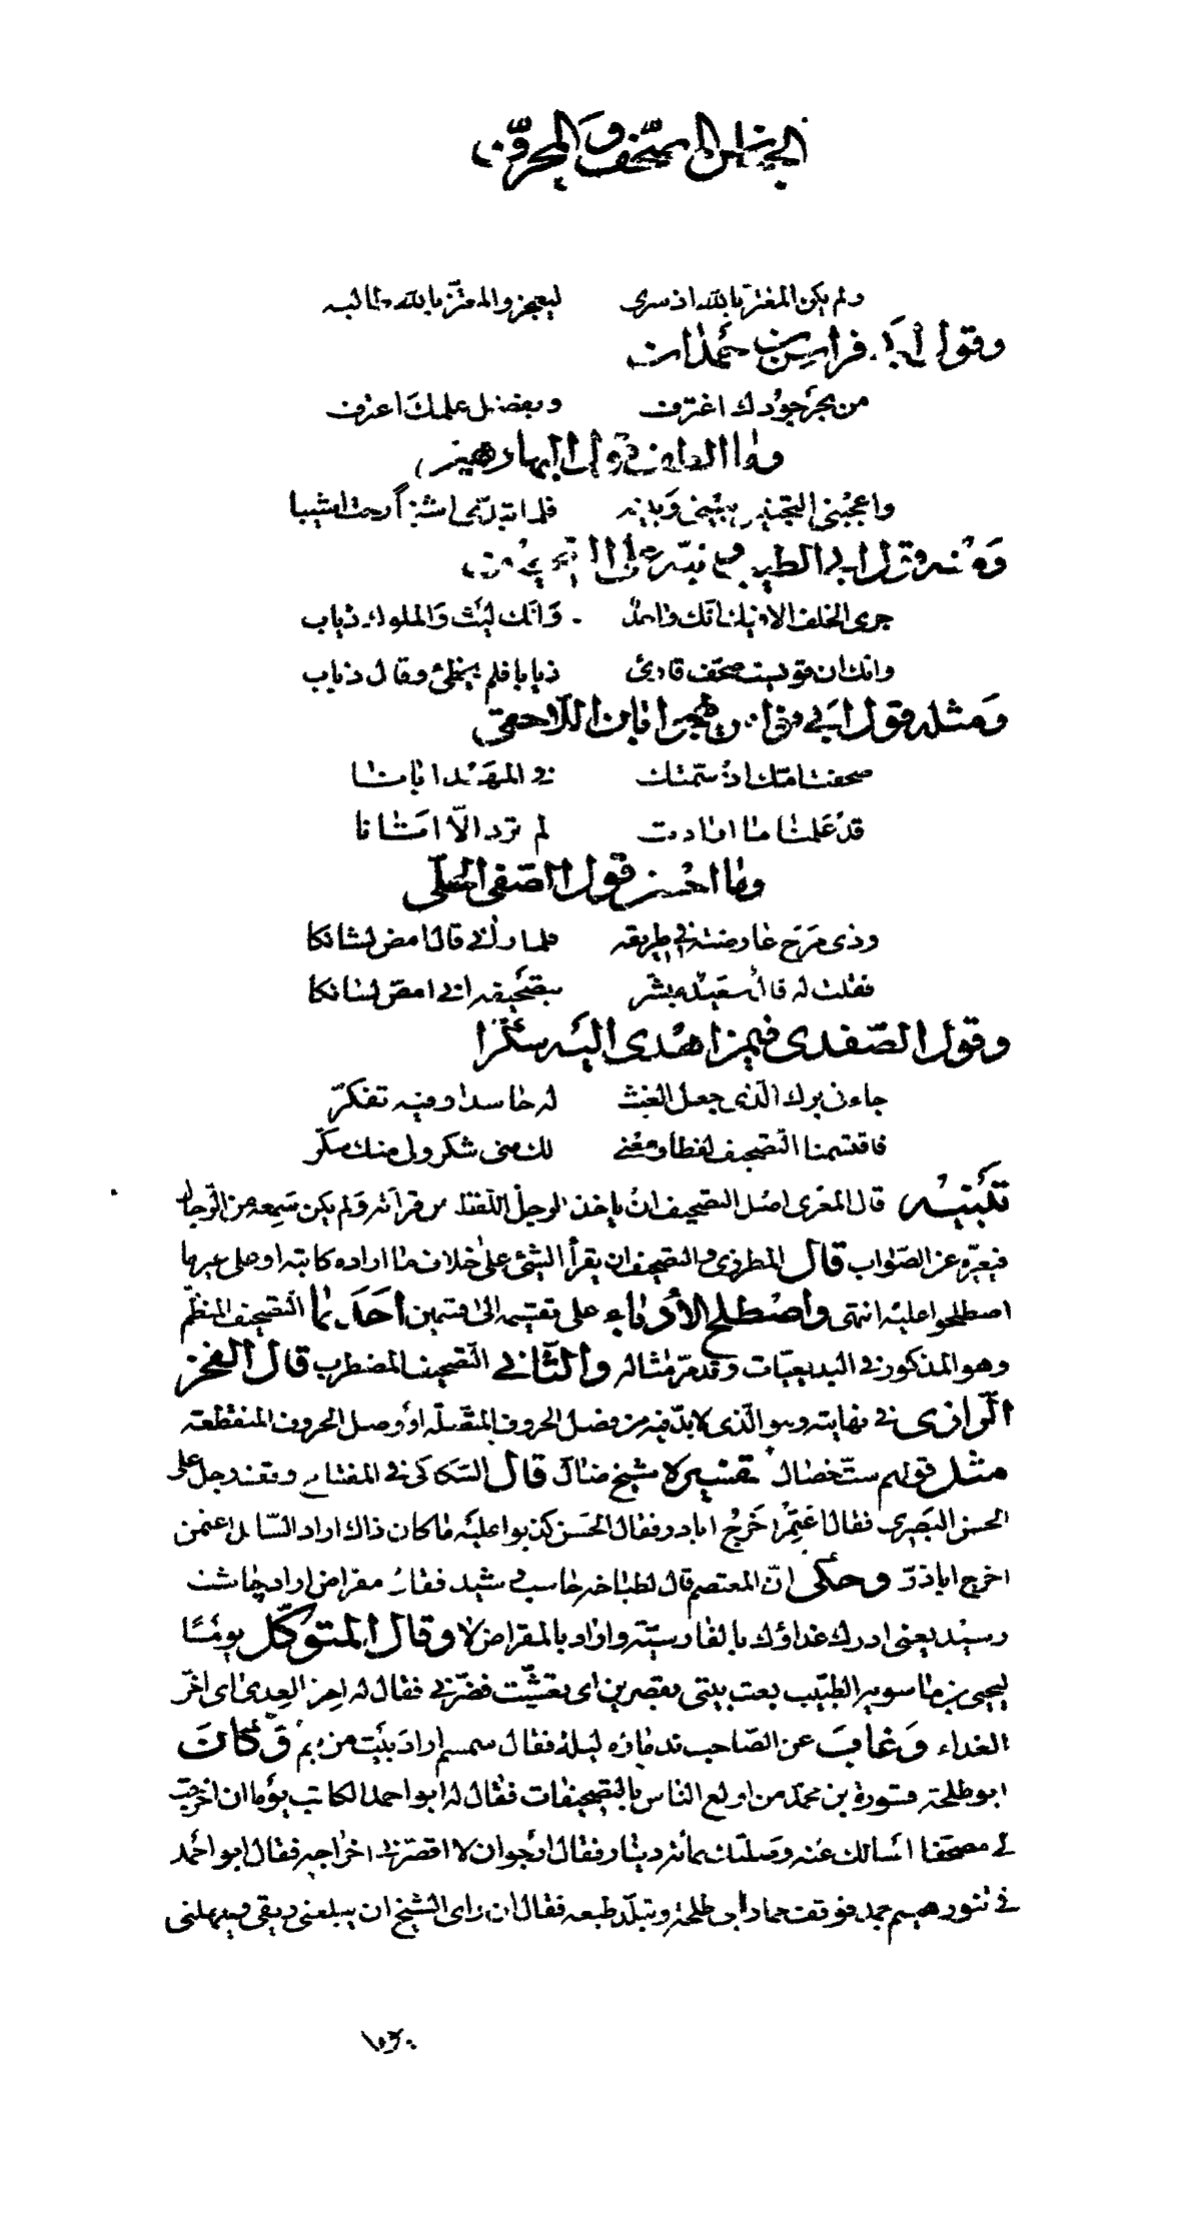 الجناس المصحف والمحرف
ولم يكن المغتر بالله اذ سرى ليعجز والمعتز بالله طالبه
وقول ابي فراس بن حمدان
من بحر جودك اغترف وبفضل علمك اعترف
وما الطف قول البها زهير
واعجبني التجنيس بيني وبينه فلما تبدى اشنبا رحت اشيبا
ومنه قول ابي الطيب
جرى الخلف الا فيك انك واحد وانك ليث والملوك ذياب
وانك ان قويست صحف قارئ ذيابا فلم يخطئ وقال ذباب
ومثله قول ابي نواس في ابان اللاحقي
صحفت امك اذ سمتك في المهد ابانا
قد علمنا ما ارادت لم ترد الا اتانا
وما احسن قول الصفي الحلي
وذي مرح عارضته في طريقه فلما رآني قال امض لشانكا
فقلت له قال سعيد مبشر بتصحيفه اني امص لسانكا
وقول الصفدي فيمن اهدى اليه سكرا
جاءني برك الذي جعل الغيث له حاسدا وفيه تفكر
فاقتسمنا التصحيف لفظا ومعنى لك مني شكر ولي منك سكر
تنبيه قال المعري اصل التصحيف ان ياخذ الرجل اللفظ من قرآته ولم يكن سمعه من الرجال
فيغيره عن الصواب قال المطرزي والتصحيف ان يقرأ الشئ على خلاف ما اراده كاتبه او على غير ما
اصطلحوا عليه انتهى واصطلح الأدباء على تقسيمه الى قسمين احدهما التصحيف المنظم
وهو المذكور في البديعيات وقد مر مثاله والثاني التصحيف المضطرب قال الفخر
الرازي في نهايته وهو الذي لا بد فيه من فصل الحروف المتصلة او وصل الحروف المنقطعة
مثل قولهم ستخصال تفسيره شيخ ضال قال السكاكي في المفتاح وقف رجل على
الحسن البصري فقال اعتمر اخرج ابادر فقال الحسن كذبوا عليه ما كان ذاك اراد السائل اعثمن
اخرج اباذر وحكى ان المعتصم قال لطباخه حاسب في شيد فقال مقراض اراد چاشت
رسيد يعني ادرك غداؤك بالفارسية واراد بالمقراض لا وقال المتوكل يومًا
ليحيى بن ماسويه الطبيب بعت بيتي بقصرين اى تعشيت فضرني فقال له اخر الغدا اى اخر
الغداء وغاب عن الصاحب ندمانه ليلة فقال سمسم اراد بيت من بم وكان
ابو طلحة قسورة بن محمد من اولع الناس بالتصحيفات فقال له ابو احمد الكاتب يوما ان اخرجت
لي مصحفا اسالك عنه وصلتك بمائة دينار فقال ارجو ان لا اقصر في اخراجه فقال ابو احمد
في تنور هيسم جمد فوقف حمار ابي طلحة وتبلد طبعه فقال ان راى الشيخ ان يبلعني ريقي ويمهلني